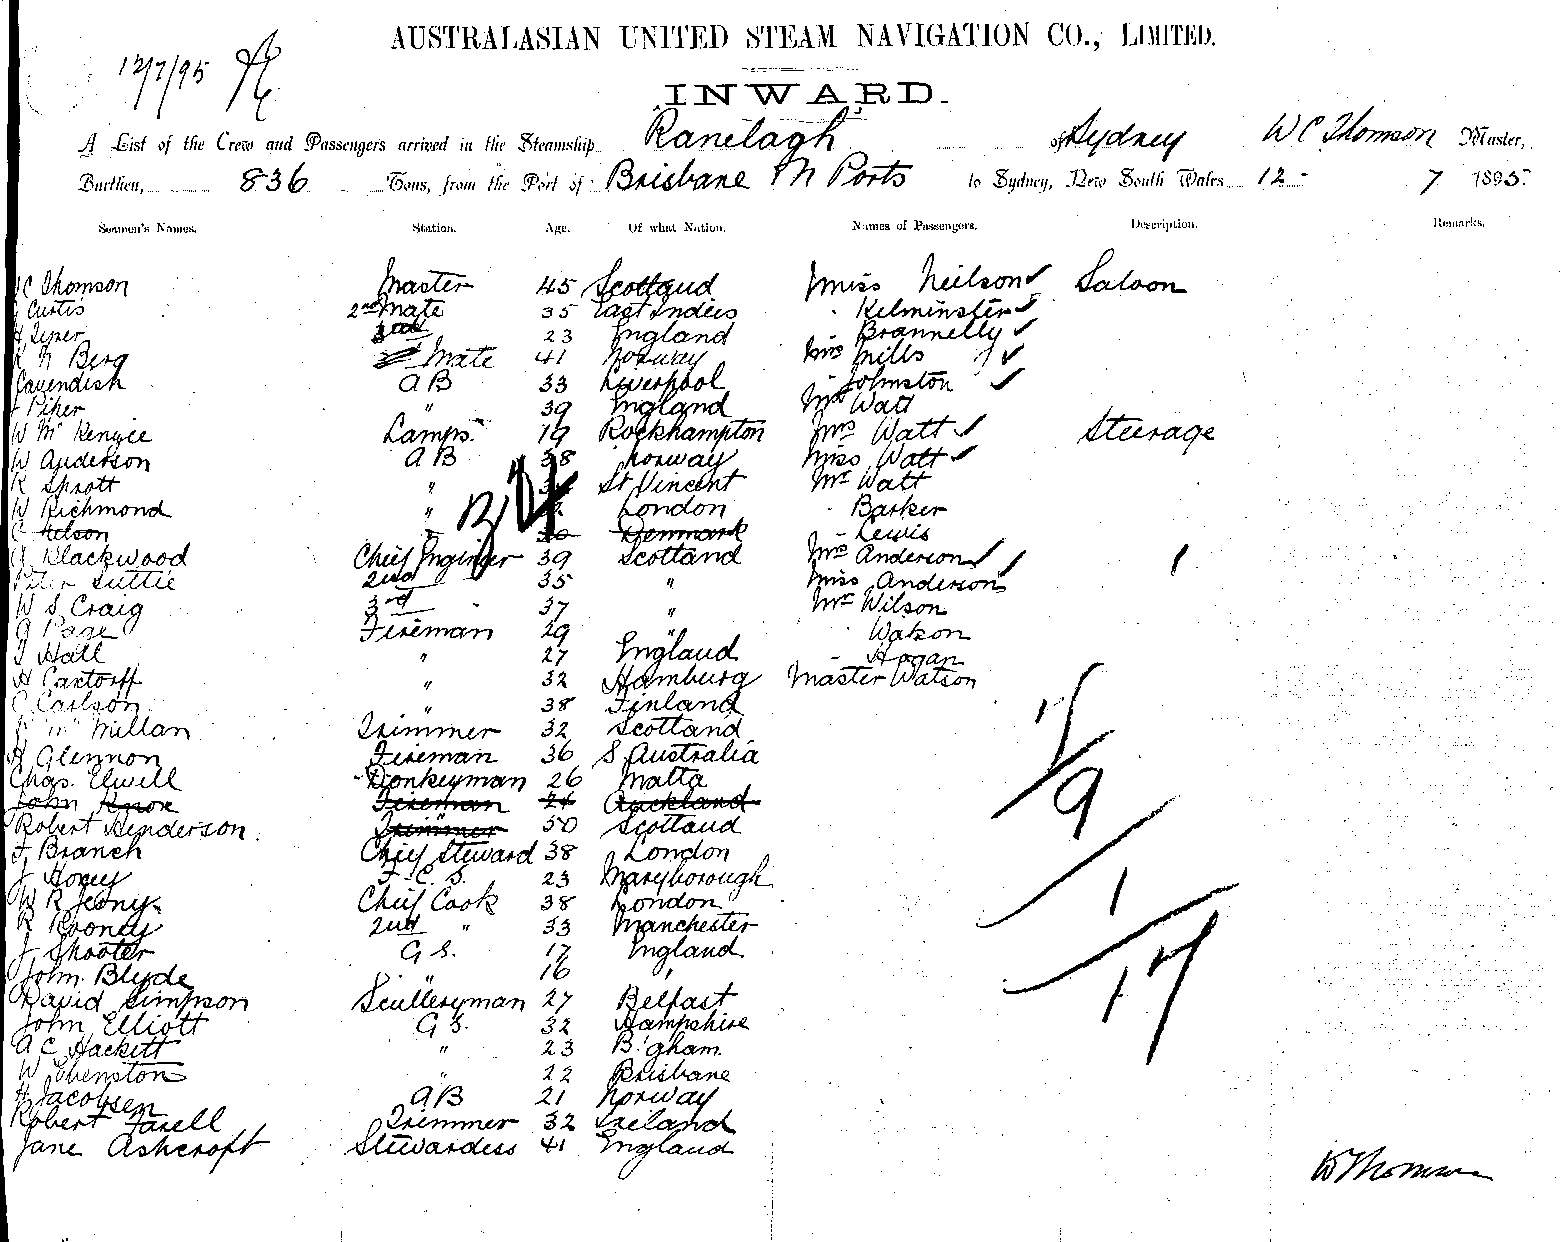 AUSTRALASIAN UNITED STEAM NAVIGATION CO., LIMITED.
12/7/95
INWARD.
A List of the Crew and Passengers arrived in the Steamship Ranelagh of Sydney W C Thomson Master,
Burthen, 836 Tons, from the Port of Brisbane N Ports to Sydney, New South Wales 12 - 7 1895
Seamen's Names. Station. Age. Of what Nation. Names of Passengers. Description. Remarks.
C Thomson Master 45 Scotland Miss Neilson ✓ Saloon
Curtis 2nd Mate 35 East Indies " Kelminster ✓
3rd 23 England " Brannelly ✓
N Berg Mate 41 Norway Mrs Mills ✓
Cavendish AB 33 Liverpool " Johnston ✓
Piper " 39 England Mr Watt
W McKenzie Lamps 19 Rockhampton Mrs Watt ✓ Steerage
W Anderson AB 38 Norway Miss Watt ✓
R Sprott " St Vincent Mr Watt
W Richmond " London " Barker
C Nelson " Denmark " Lewis
Blackwood Chief Engineer 39 Scotland Mrs Anderson ✓ ✓ 1
Peter Suttie 2nd 35 " Miss Anderson
W S Craig 3rd " 37 " Mr Wilson
Page Fireman 29 " Watson
Hall " 27 England " Hogan
H Cartorff " 32 Hamburg Master Watson
C Carlson " 38 Finland
McMillan Trimmer 32 Scotland
H Glennon Fireman 36 S Australia
Chas. Elwell Donkeyman 26 Malta
John Knox Fireman 21 Auckland
Robert Henderson Trimmer 50 Scotland
F Branch Chief Steward 38 London
J Hoey F. C. S. 23 Maryborough
W R Chief Cook 38 London
R Rooney 2nd " 33 Manchester
J Shooter G S. 17 England
John Blyde " 16 "
David Simpson Sculleryman 27 Belfast
John Elliott G S. 32 Hampshire
A C Hackett " 23 B'gham
W Shenston " 22 Brisbane
H Jacobsen AB 21 Norway
Robert Farell Trimmer 32 Ireland
Jane Ashcroft Stewardess 41 England
1/
9
1
17
W Thomson